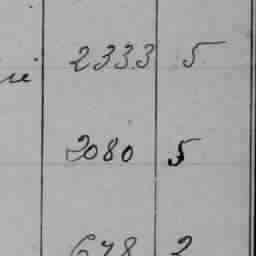 2333 5
2080 5
678 2